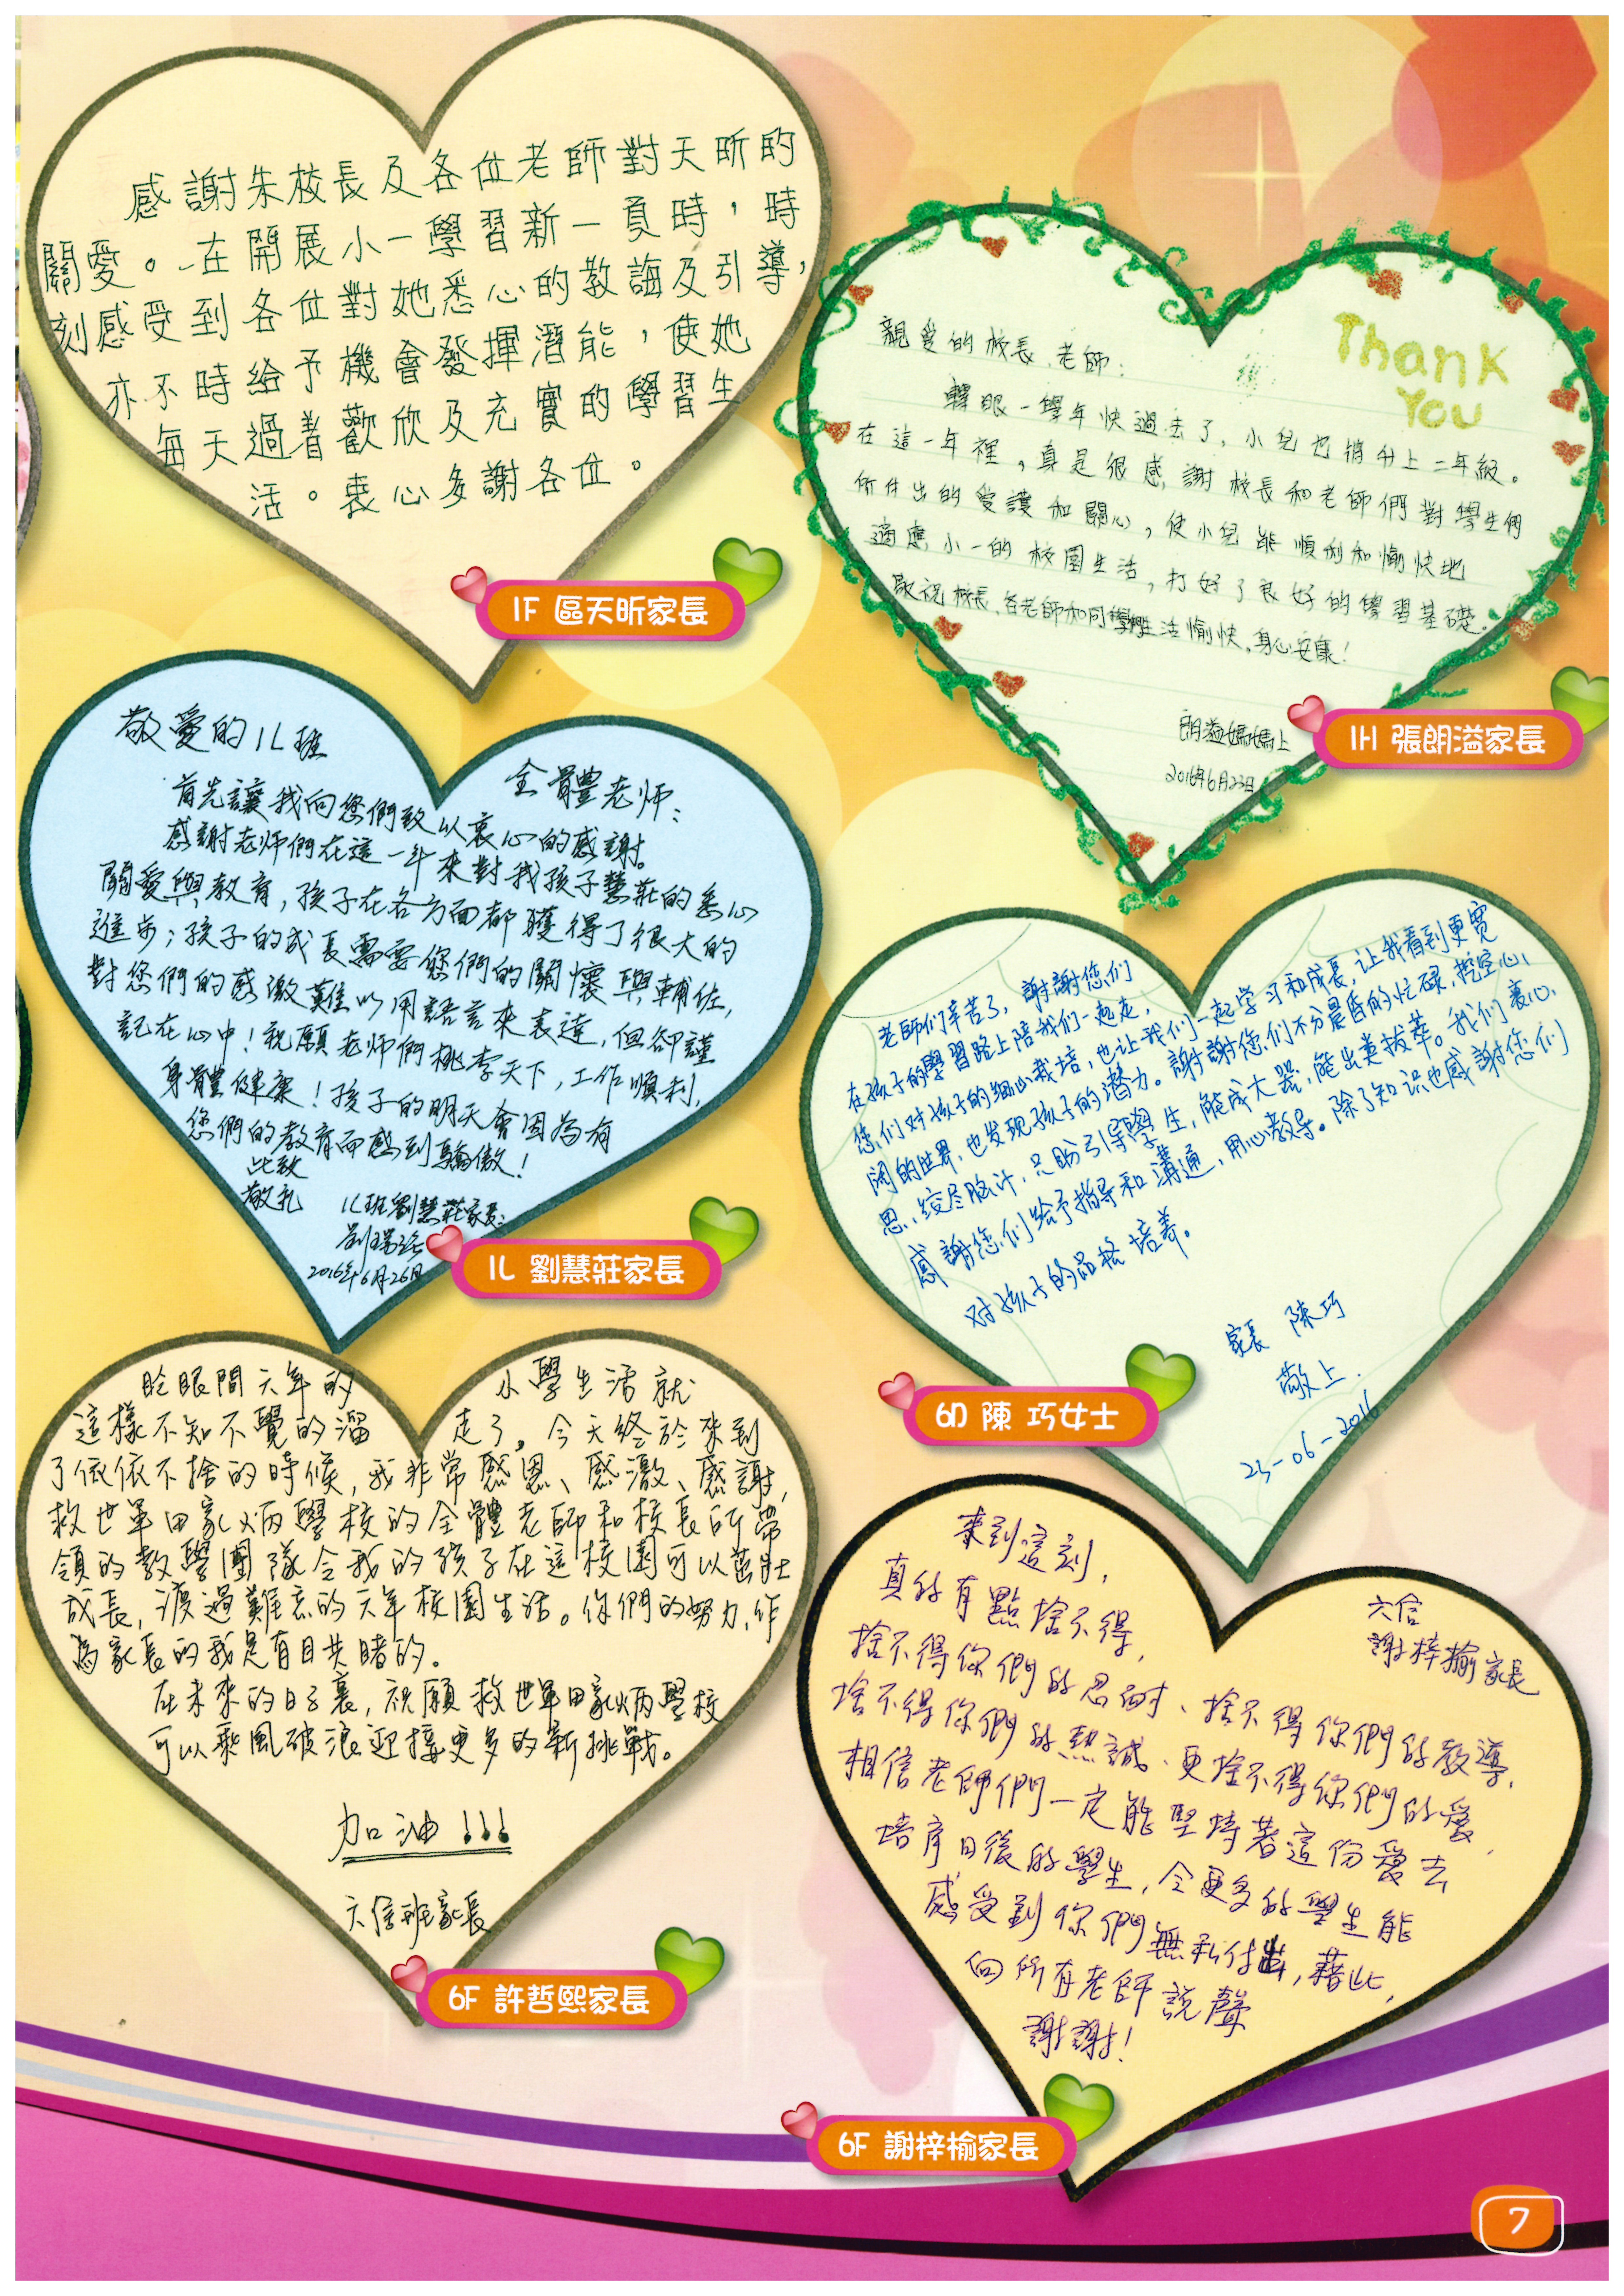 感謝朱校長及各位老師對天昕的
關愛。在開展小一學習新一頁時，時
刻感受到各位對她悉心的教誨及引導，
亦不時給予機會發揮潛能，使她
每天過着歡欣及充實的學習生
活。衷心多謝各位。
1F 區天昕家長
Thank
You
親愛的校長、老師：
轉眼一學年快過去了，小兒也將升上二年級。
在這一年裡，真是很感謝校長和老師們對學生們
所付出的愛護和關心，使小兒能順利和愉快地
適應小一的校園生活，打好了良好的學習基礎。
敬祝校長、各老師和同學們生活愉快，身心安康！
朗溢媽媽上
2016年6月23日
1H 張朗溢家長
敬愛的1L班
全體老师：
首先讓我向您們致以衷心的感謝。
感謝老师們在這一年來對我孩子慧莊的悉心
關愛與教育，孩子在各方面都獲得了很大的
進步；孩子的成長需要您們的關懷與輔佐，
對您們的感激難以用語言來表達，但卻謹
記在心中！祝願老师們桃李天下，工作順利，
身體健康！孩子的明天會因為有
您們的教育而感到驕傲！
此致
敬礼
1L班劉慧莊家長：
2016年6月26日
1L 劉慧莊家長
老師们辛苦了，謝謝您们
在孩子的學習路上陪我们一起走，
您们对孩子的细心栽培，也让我们一起学习和成長，让我看到更宽
阔的世界，也发现孩子的潜力。謝謝您们不分晨昏的忙碌，挖空心
思，绞尽脑汁，只盼引导學生，能成大器，能出类拔萃。我们衷心
感謝您们给予指导和溝通，用心教导。除了知识也感謝您们
对孩子的品格培养。
家長 陳巧
敬上.
23-06-2016
6D 陳 巧女士
眨眼間六年的 小學生活就
這樣不知不覺的溜 走了，今天終於來到
了依依不捨的時候，我非常感恩、感激、感謝，
救世軍田家炳學校的全體老師和校長所帶
領的教學團隊令我的孩子在這校園可以茁壯
成長，渡過難忘的六年校園生活。你們的努力，作
為家長的我是有目共睹的。
在未來的日子裏，祝願救世軍田家炳學校
可以乘風破浪迎接更多的新挑戰。
加油！！！
六信班家長
6F 許哲熙家長
來到這刻，
真的有點捨不得，
捨不得你們的忍耐、捨不得你們的教導，
捨不得你們的熱誠、更捨不得你們的愛，
相信老師們一定能堅持著這份愛去
培育日後的學生，令更多的學生能
感受到你們無私付出，藉此，
向所有老師說聲
謝謝！
六信
謝梓榆家長
6F 謝梓榆家長
7